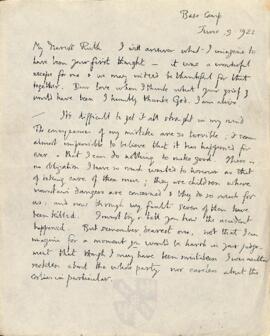 Base Camp
June 9 1922
My Dearest Ruth I will answer what I imagine to
have been your first thought — it was a wonderful
escape for me & we may indeed be thankful for that
together. Dear love when I think what your grief
would have been I humbly thank God I am alive
— It's difficult to get it all straight in my mind
The consequences of my mistake are so terrible; it seems
almost impossible to believe that it has happened for
ever & that I can do nothing to make good. There is
no obligation I have so much wanted to honour as that
of taking care of these men; they are children where
mountain dangers are concerned & they do so much for
us; and now through my fault seven of them have
been killed. I must try & tell you how the accident
happened. But remember dearest one, not that I
imagine for a moment you would be harsh in your judge-
ment that though I may have been mistaken I was neither
reckless about the whole party nor careless about the
coolies in particular.